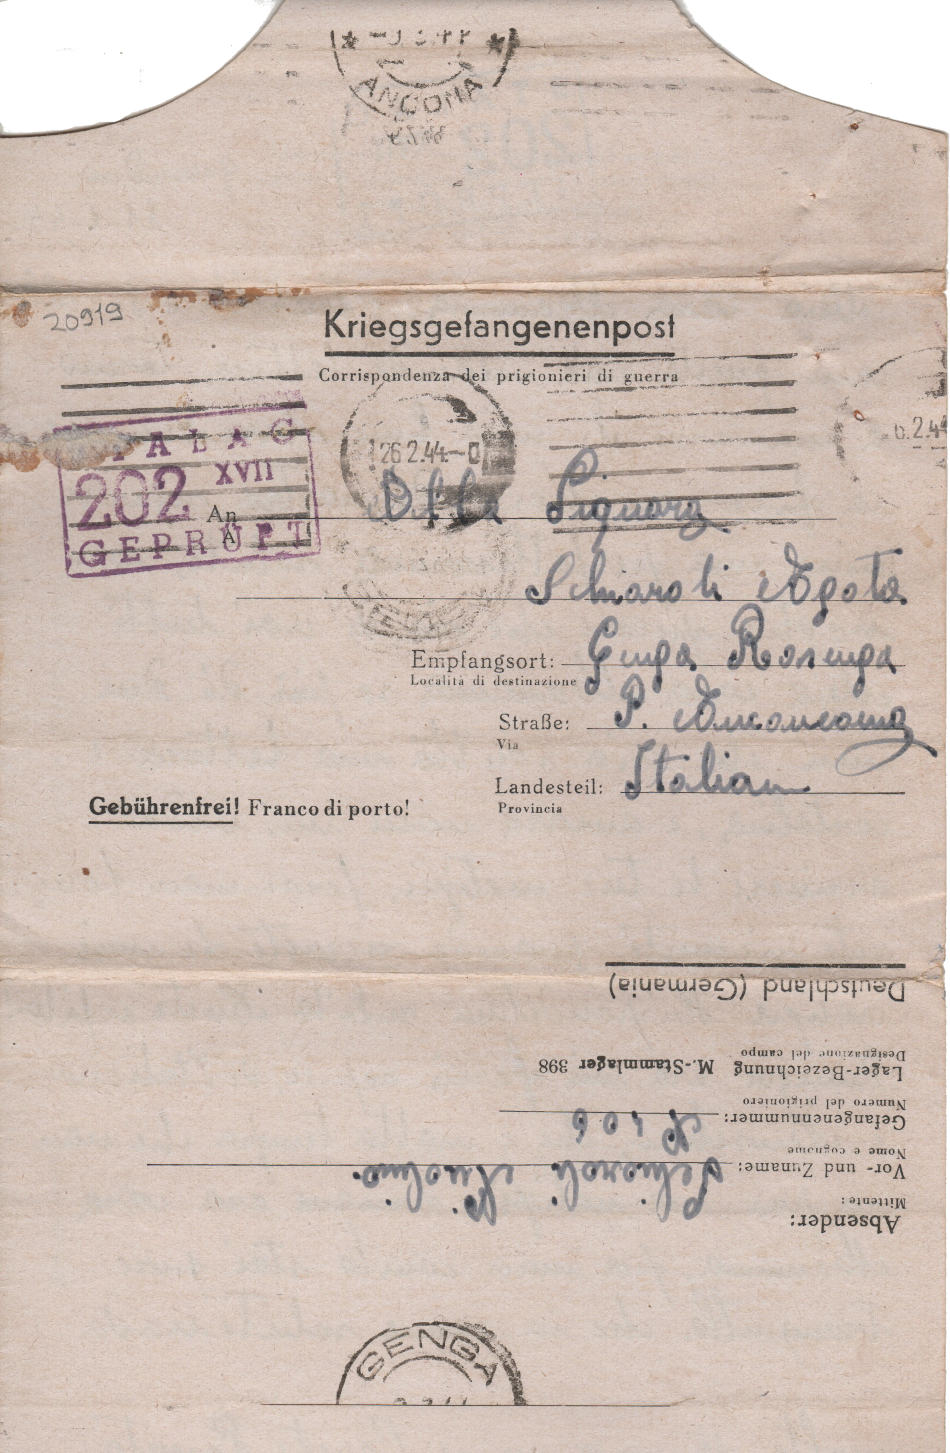 ANCONA
20919
Kriegsgefangenenpost
Corrispondenza dei prigionieri di guerra
STALAG
XVII
202
GEPRÜFT
26.2.44.
6.2.44
An
A
Alla Signora
Schiaroli Agata
Empfangsort: Genga Rosenga
Località di destinazione
Straße: P. Anconeama
Via
Landesteil: Italian
Provincia
Gebührenfrei! Franco di porto!
Deutschland (Germania)
Lager-Bezeichnung M.-Stammlager 398
Designazione del campo
Gefangenennummer:
Numero del prigioniero
Vor- und Zuname: Schiaroli
Nome e cognome
Absender:
Mittente:
GENGA